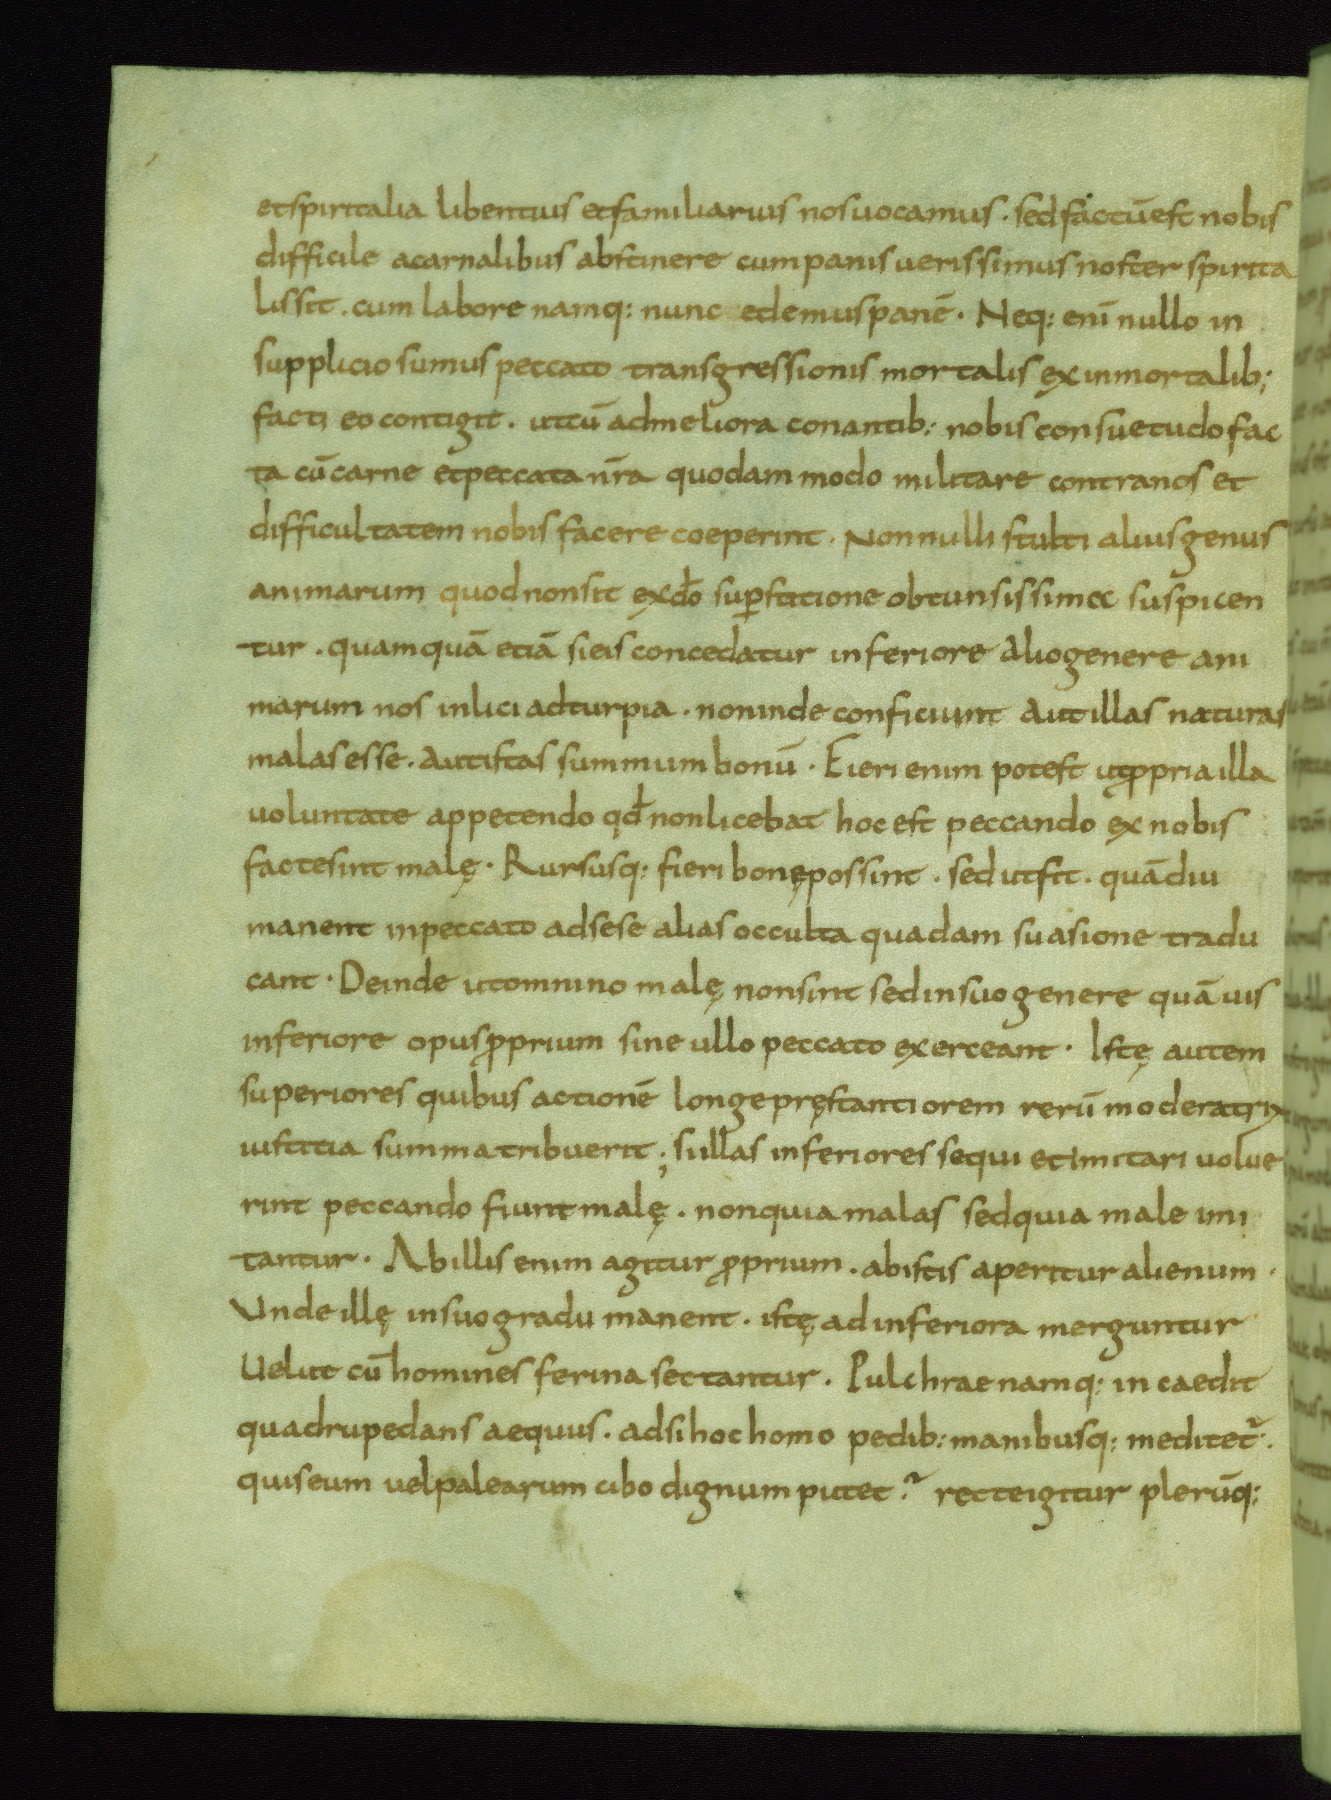 etspiritalia libentius etfamiliarius nosuocamus. sedfactūest nobis
difficile acarnalibus abstinere cumpanisuerissimusnoster spirita
lissit. cum labore namq: nunc edemuspanē. Neq: enī nullo in
supplicio sumus peccato transgressionis mortalis exinmortalib;
facti eo contigit. utcū admeliora conantib: nobis consuetudo fac
ta cūcarne etpeccata nr̄a quodam modo militare contranos et
difficultatem nobis facere coeperint. Nonnulli stulti aliusgenus
animarum quodnonsit exdō sup̄stitione obtunsissimae suspicen
tur. quamquā etiā sieis concedatur inferiore aliogenere ani
marum nos inlici adturpia. noninde conficiunt aut illas naturas
malasesse. autistas summum bonū. Fieri enim potest utꝓpria illa
uoluntate appetendo qđ nonlicebat hoc est peccando ex nobis
factesint malę. Rursusq: fieri bonępossint. sed utfit. quādiu
manent inpeccato adsese alias occulta quadam suasione tradu
cant. Deinde utomnino malę nonsint sedinsuo genere quāuis
inferiore opusꝓprium sine ullo peccato exerceant. Istę autem
superiores quibus actionē longe pręstantiorem rerū moderatrix
iustitia summa tribuerit; siillas inferiores sequi etimitari uolue
rint peccando fiuntmalę. nonquia malas sedquia male imi
tantur. Abillis enim agitur ꝓprium. abistis aperitur alienum.
Unde illę insuogradu manent. istę ad inferiora merguntur
Uelut cū homines ferina sectantur. Pulchrae namq: in caedit
quadrupedans aequus. adsihoc homo pedib: manibusq: meditet᷑.
quiseum uelpalearum cibo dignum putet? recteigitur plerūq: